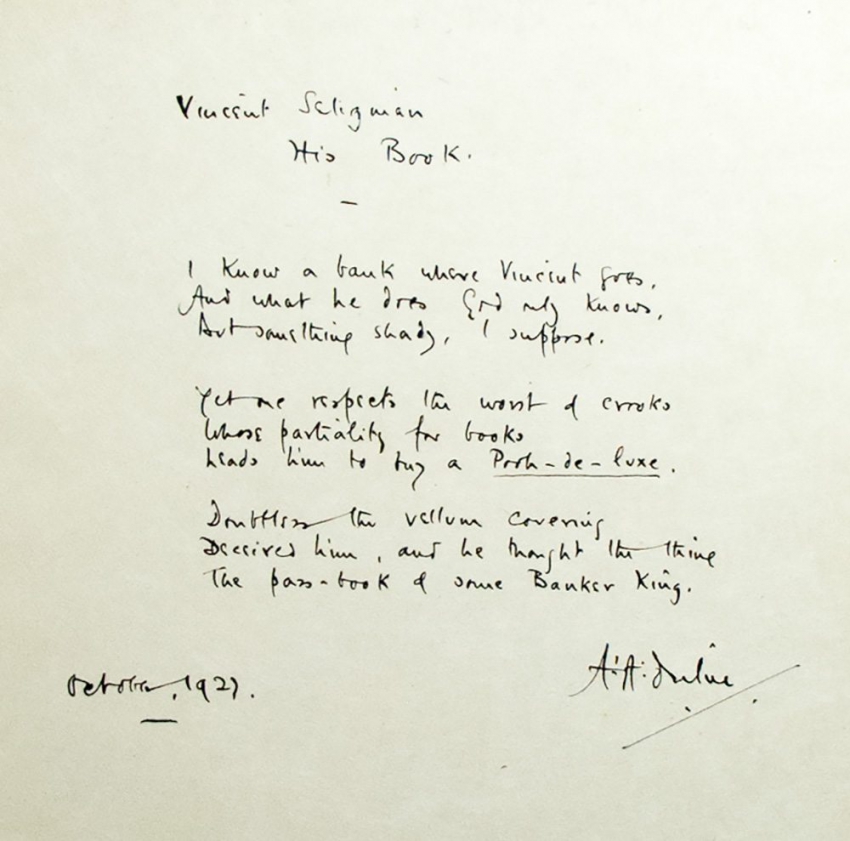 Vincent Seligman
His Book.
I know a bank where Vincent goes,
And what he does God only knows,
But something shady, I suppose.
Yet one respects the worst of crooks
Whose partiality for books
Leads him to buy a Pooh-de-luxe.
Doubtless the vellum covering
Deceived him, and he thought the thing
The pass-book of some Banker King.
A.A. Milne
October, 1927.